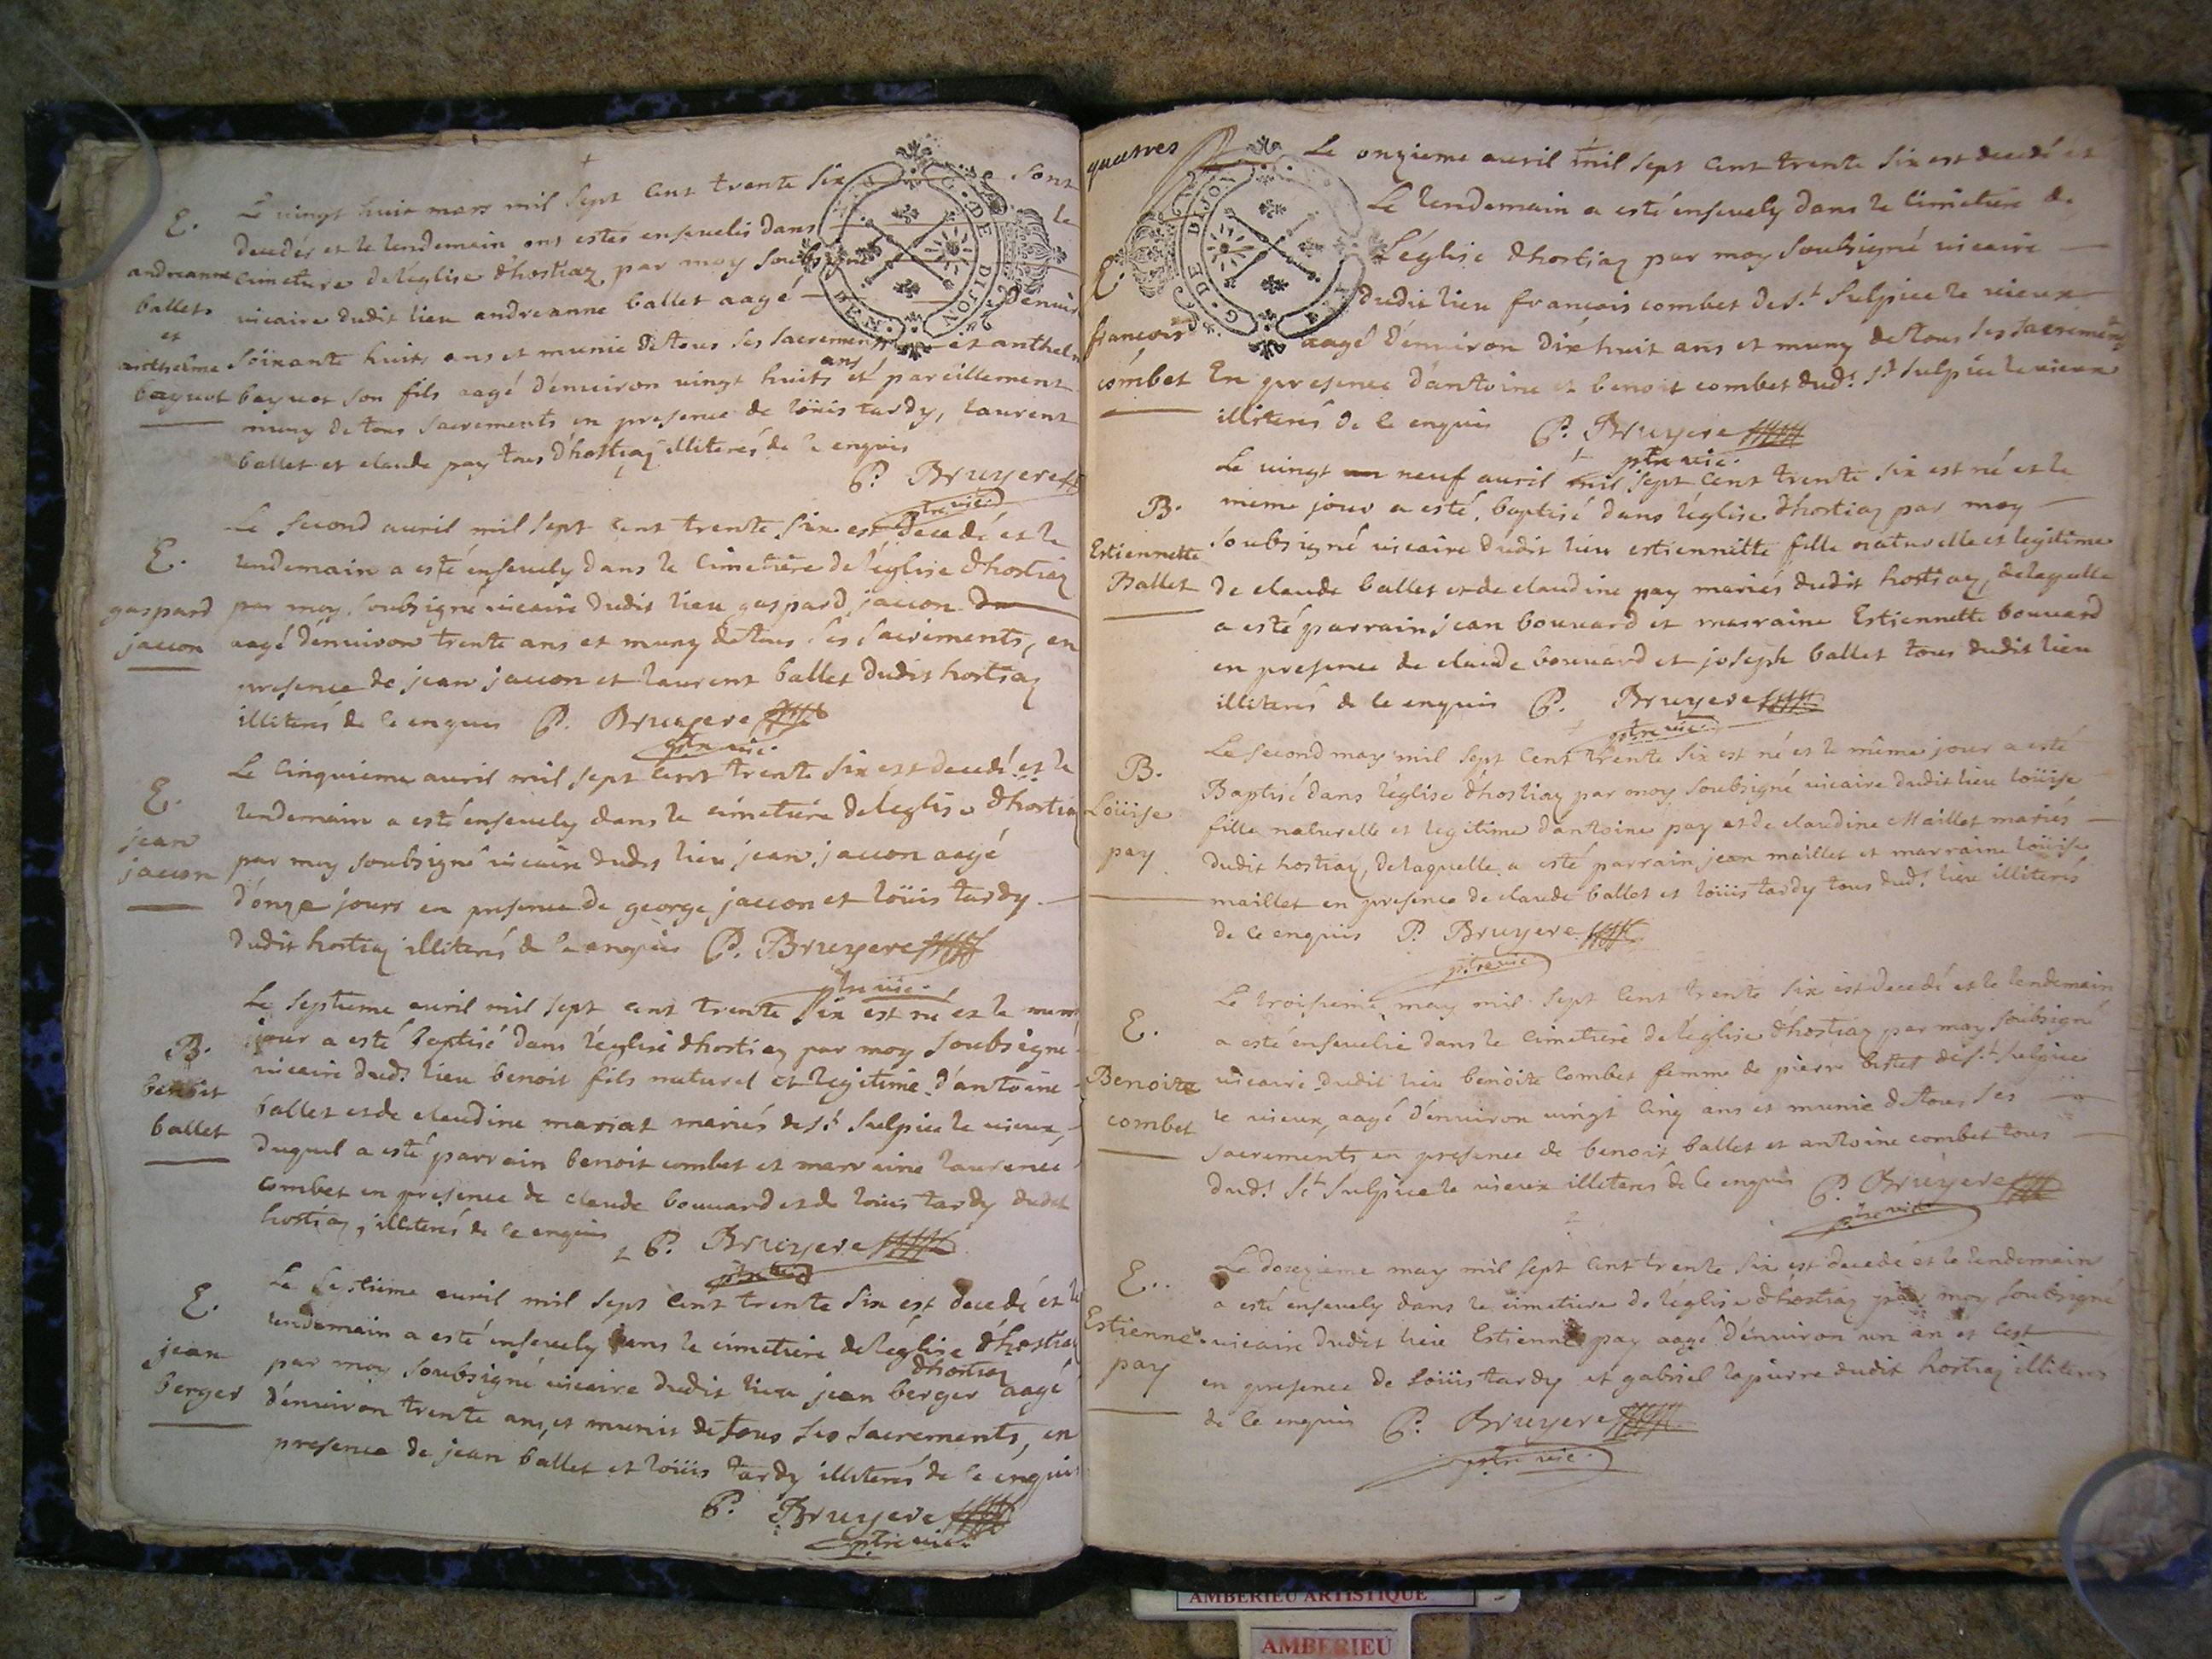 Le vingt huit mars mil sept cent trente six sont
E. decedés et le lendemain ont estés ensevelis dans le
andreanne cimetiere de léglise d'hostiaz par moy soubsigné
ballet vicaire dudit lieu andreanne ballet aagé d'enuiron
et soixante huits ans et munie de tous ses sacrements et anthelme
anthelme ans
bayuot bayuot son fils aagé d'enuiron vingt huits et pareillement
muny de tous sacrements en presence de loüis tardy, laurent
ballet et claude pay tous d'hostiaz illiterés de ce enquis
P. Bruyere
ptre vic.
Le second auril mil sept cent trente six est decedé et le
E. lendemain a esté ensevely dans le cimetiere de l'église d'hostiaz
gaspard par moy soubsigné vicaire dudit lieu gaspard jaccon
jaccon aagé d'enuiron trente ans et muny de tous ses sacrements, en
presence de jean jaccon et laurent ballet dudit hostiaz
illiterés de ce enquis P. Bruyere
ptre vic.
Le cinquieme auril mil sept cent trente six est decedé et le
E. lendemain a esté ensevely dans le cimetiere de léglise d'hostiaz
jean par moy soubsigné vicaire dudit lieu jean jaccon aagé
jaccon d'onze jours en presence de george jaccon et loüis tardy
dudit hostiaz illiterés de ce enquis P. Bruyere
ptre vic.
Le septieme auril mil sept cent trente six est né et le meme
B. jour a esté baptisé dans l'églisé d'hostiaz par moy soubsigné
benoit vicaire dud.t lieu benoit fils naturel et legitime d'antoine
ballet ballet et de claudine mariat mariés de s.t sulpice le vieux,
duquel a esté parrain benoit combet et marraine laurence
combet en presence de claude bouuard et de loüis tardy dudit
hostiaz, illiterés de ce enquis P. Bruyere
ptre vic
Le septieme auril mil sept cent trente six est decedé et le
E. lendemain a esté ensevely dans le cimetiere de léglise d'hostiaz
d'hostiaz
jean par moy soubsigné vicaire dudit lieu jean berger aagé
berger d'enuiron trente ans, et munis de tous ses sacrements, en
presence de jean ballet et loüis tardy illiterés de ce enquis
P. Bruyere
ptre vic.
GEN. DE DIJON
quatres
G. DE DIJON
Le onzieme auril mil sept cent trente six est decedé et
Le lendemain a esté ensevely dans le cimetiere de
L'église d'hostiaz par moy soubsigné vicaire
E. dudit lieu francois combet de s.t sulpice le vieux
francois aagé d'enuiron dix huit ans et muny de tous ses sacrements
combet En presence d'antoine et benoit combet dud.t s.t sulpice le vieux
illiterés de ce enquis P. Bruyere
ptre vic.
Le vingt neuf auril mil sept cent trente six est né et le
B. meme jour a esté baptisé dans l'église d'hostiaz par moy
Estiennette soubsigné vicaire dudit lieu estiennette fille naturelle et legitime
Ballet de claude ballet et de claudine pay mariés dudit hostiaz, delaquelle
a esté parrain jean bouuard et marraine Estiennette bouuard
en presence de claude bouuard et joseph ballet tous dudit lieu
illiterés de ce enquis P. Bruyere
ptre vic.
Le second may mil sept cent trente six est né et le même jour a esté
B. Baptisé dans l'église d'hostiaz par moy soubsigné vicaire dudit lieu loüise
Loüise fille naturelle et legitime d'antoine pay et de claudine Maillet mariés
pay dudit hostiaz, delaquelle a esté parrain jean maillet et marraine loüise
maillet en presence de claude ballet et loüis tardy tous dud.t lieu illiterés
de ce enquis P. Bruyere
ptre vic
Le troisieme may mil sept cent trente six est decedé et le lendemain
E. a esté ensevelie dans le cimetiere de léglise d'hostiaz par moy soubsigné
Benoite vicaire dudit lieu benoite combet femme de pierre de s.t sulpice
combet le vieux, aagé d'enuiron vingt cinq ans et munie de tous ses
sacrements en presence de benoit ballet et antoine combet tous
dud.t s.t sulpice le vieux illiterés de ce enquis P. Bruyere
ptre vic
E. Le douzieme may mil sept cent trente six est decedé et le lendemain
a esté ensevely dans le cimetiere de l'église d'hostiaz par moy soubsigné
Estienne vicaire dudit lieu Estienne pay aagé d'enuiron un an et cest
pay en presence de Loüis tardy et gabriel lapierre dudit hostiaz illiterés
de ce enquis P. Bruyere
ptre vic.
AMBERIEU ARTISTIQUE
AMBERIEU